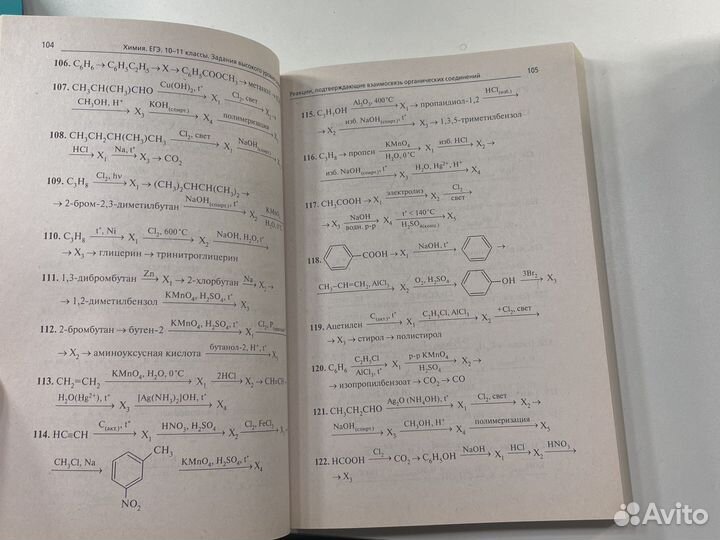 104 Химия. ЕГЭ. 10–11 классы. Задания высокого уровня
106. C₆H₆ → C₆H₅C₂H₅ → X → C₆H₅COOCH₃ → метанол →
107. CH₃CH(CH₃)CHO Cu(OH)₂, t° → X₁ Cl₂, свет →
CH₃OH, H⁺ → X₃ KOH(спирт.) → X₄ полимеризация →
108. CH₃CH₂CH(CH₃)CH₃ Cl₂, свет → X₁ NaOH(спирт.) →
HCl → X₁ Na, t° → X₃ → CO₂
109. C₃H₈ Cl₂, hν → X₁ → (CH₃)₂CHCH(CH₃)₂ →
→ 2-бром-2,3-диметилбутан NaOH(спирт.), t° → X₂ KMnO₄ H₂O, 0°C
110. C₃H₈ t°, Ni → X₁ Cl₂, 600°C → X₂ NaOH, H₂O, t° →
→ X₃ → глицерин → тринитроглицерин
111. 1,3-дибромбутан Zn → X₁ → 2-хлорбутан Na → X₂ →
→ 1,2-диметилбензол KMnO₄, H₂SO₄, t° → X₃
112. 2-бромбутан → бутен-2 KMnO₄, H₂SO₄, t° → X₁ Cl₂, P
→ X₂ → аминоуксусная кислота бутанол-2, H⁺, t° → X₃
113. CH₂=CH₂ KMnO₄, H₂O, 0°C → X₁ 2HCl → X₂ → CH≡CH
H₂O(Hg²⁺), t° → X₃ [Ag(NH₃)₂]OH, t° → X₄
114. HC≡CH C(акт.), t° → X₁ HNO₃, H₂SO₄ → X₂ Cl₂, FeCl₃ →
CH₃Cl, Na → CH₃ NO₂ KMnO₄, H₂SO₄, t° → X₄
Реакции, подтверждающие взаимосвязь органических соединений 105
115. C₃H₇OH Al₂O₃, 400°C → X₁ → пропандиол-1,2 HCl(изб.) →
→ X₂ изб. NaOH(спирт.), t° → X₃ → 1,3,5-триметилбензол
116. C₃H₈ → пропен KMnO₄ H₂O, 0°C → X₁ изб. HCl → X₂
изб. NaOH(спирт.), t° → X₃ H₂O, Hg²⁺, H⁺ → X₄
117. CH₃COOH → X₁ электролиз → X₂ Cl₂ свет →
→ X₃ NaOH водн. р-р → X₄ t° < 140°C H₂SO₄(конц.) → X₅
118. COOH → X₁ NaOH, t° → →
CH₃–CH=CH₂, AlCl₃ → X₂ O₂, H₂SO₄ → OH 3Br₂ → X₃
119. Ацетилен C(акт.), t° → X₁ C₂H₅Cl, AlCl₃ → X₂ +Cl₂, свет →
→ X₃ → стирол → полистирол
120. C₆H₆ C₂H₅Cl AlCl₃, t° → X₁ р-р KMnO₄ H₂SO₄ → X₂ →
→ изопропилбензоат → CO₂ → CO
121. CH₃CH₂CHO Ag₂O (NH₄OH), t° → X₁ Cl₂, свет → X₂
NaOH(спирт.) → X₃ CH₃OH, H⁺ → X₄ полимеризация → X₅
122. HCOOH Cl₂ → CO₂ → C₆H₅OH NaOH → X₁ HCl → X₂ HNO₃ →
→ X₃
Avito